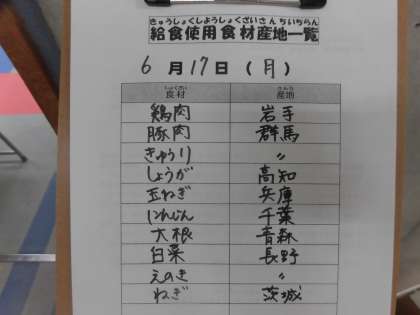 きゅうしょくしようしょくざいさんちいちらん
給食使用食材産地一覧
6月17日(月)
しょくざい さんち
食材 産地
鶏肉 岩手
豚肉 群馬
きゅうり 〃
しょうが 高知
玉ねぎ 兵庫
にんじん 千葉
大根 青森
白菜 長野
えのき 〃
ねぎ 茨城